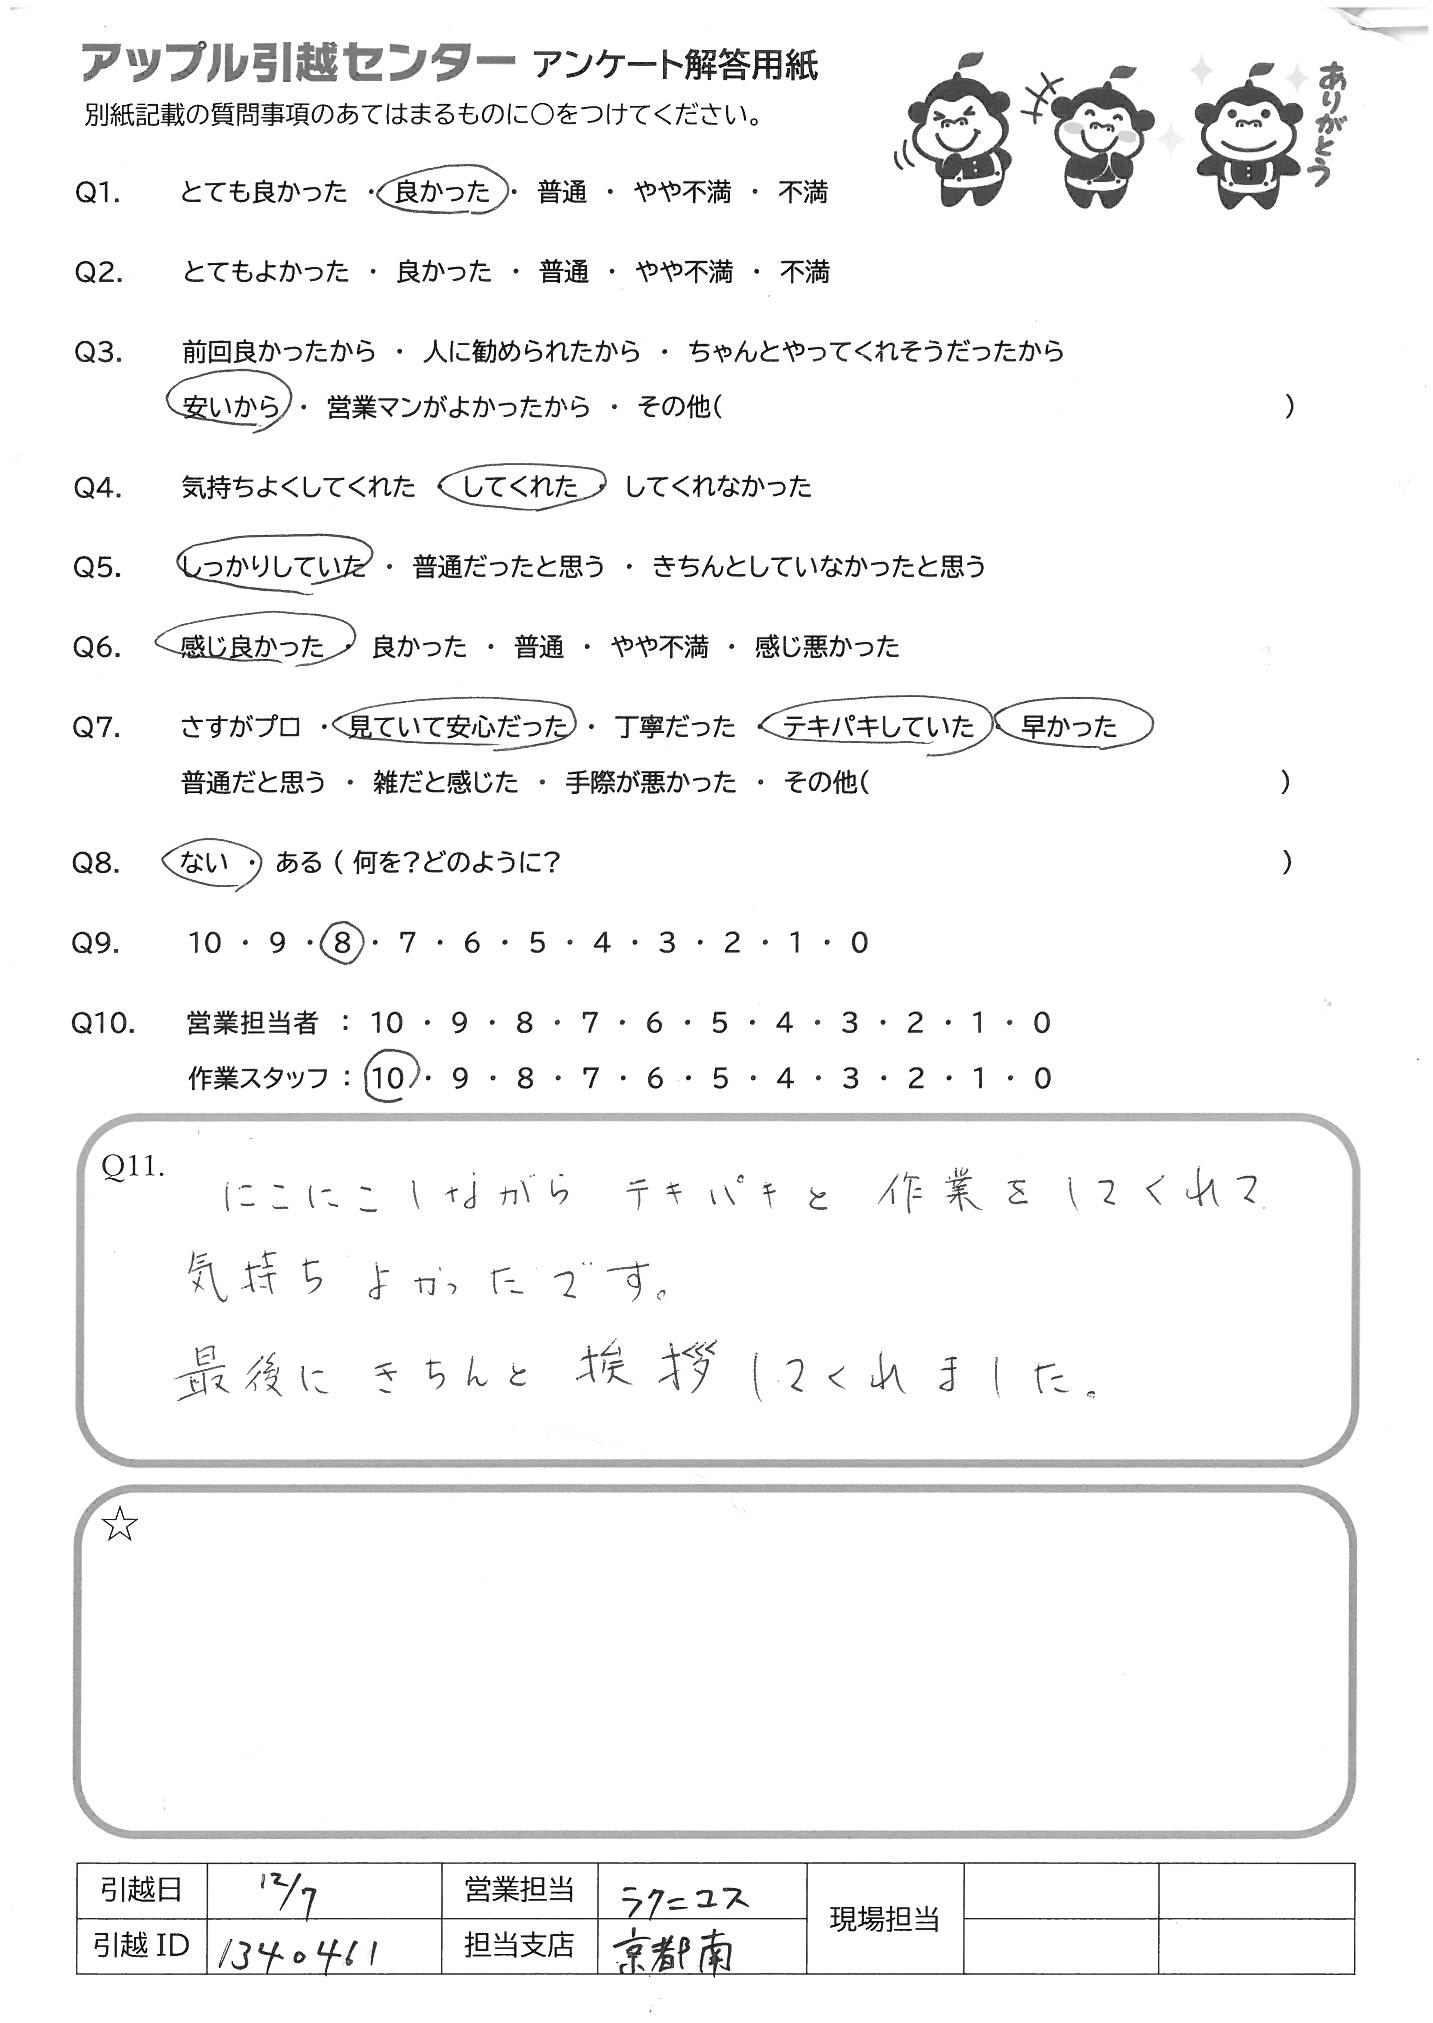 アップル引越センター アンケート解答用紙
別紙記載の質問事項のあてはまるものに○をつけてください。
ありがとう
Q1. とても良かった ・ 良かった ・ 普通 ・ やや不満 ・ 不満
Q2. とてもよかった ・ 良かった ・ 普通 ・ やや不満 ・ 不満
Q3. 前回良かったから ・ 人に勧められたから ・ ちゃんとやってくれそうだったから
安いから ・ 営業マンがよかったから ・ その他( )
Q4. 気持ちよくしてくれた ・ してくれた ・ してくれなかった
Q5. しっかりしていた ・ 普通だったと思う ・ きちんとしていなかったと思う
Q6. 感じ良かった ・ 良かった ・ 普通 ・ やや不満 ・ 感じ悪かった
Q7. さすがプロ ・ 見ていて安心だった ・ 丁寧だった ・ テキパキしていた ・ 早かった
普通だと思う ・ 雑だと感じた ・ 手際が悪かった ・ その他( )
Q8. ない ・ ある ( 何を?どのように? )
Q9. 10 ・ 9 ・ 8 ・ 7 ・ 6 ・ 5 ・ 4 ・ 3 ・ 2 ・ 1 ・ 0
Q10. 営業担当者 : 10 ・ 9 ・ 8 ・ 7 ・ 6 ・ 5 ・ 4 ・ 3 ・ 2 ・ 1 ・ 0
作業スタッフ : 10 ・ 9 ・ 8 ・ 7 ・ 6 ・ 5 ・ 4 ・ 3 ・ 2 ・ 1 ・ 0
Q11.
にこにこしながら テキパキと 作業をしてくれて
気持ちよかったです。
最後に きちんと 挨拶してくれました。
☆
引越日 12/7 営業担当 ラクニコス 現場担当
引越ID 1340461 担当支店 京都南